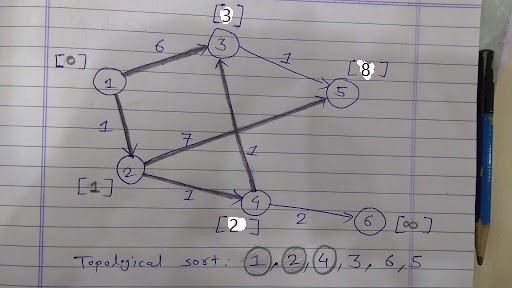 [3]
6
3
[0]
1
1
[8]
5
1
7
1
2
[1]
1
4
[2]
2
6
[∞]
Topological sort: 1, 2, 4, 3, 6, 5